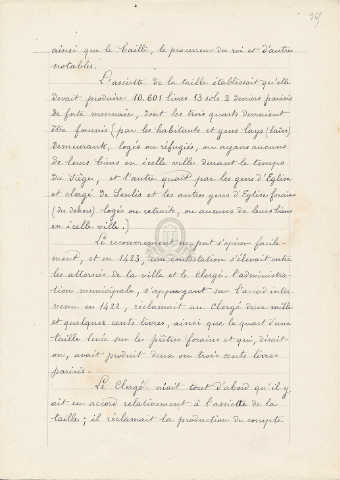 ainsi que le bailli, le procureur du roi et d'autres
notables.
L'assiette de la taille établissait qu'elle
devait produire 10.601 livres 13 sols 2 deniers parisis
de forte monnaie, dont les trois quarts devraient
être fournis (par les habitants et gens lays (laïcs)
demeurant, logés ou réfugiés, ou ayans aucuns
de leurs biens en icelle ville durant le temps
du siège, et l'autre quart par les gens d'Eglise
et clergé de Senlis et les autres gens d'Eglise forains
(du dehors) logés ou retraits, ou aucuns de leurs biens
en icelle ville.)
Le recouvrement ne put s'opérer facile-
ment, et en 1423, une contestation s'élevait entre
les attournés de la ville et le Clergé. l'administra-
tion municipale, s'appuyant sur l'accord inter-
venu en 1422, réclamait au Clergé deux mille
et quelques cents livres, ainsi que le quart d'une
taille levée sur les prêtres forains et qui, disait-
on, avait produit deux ou trois cents livres
parisis.
Le Clergé niait tout d'abord qu'il y
ait eu accord relativement à l'assiette de la
taille; il réclamait la production du compte